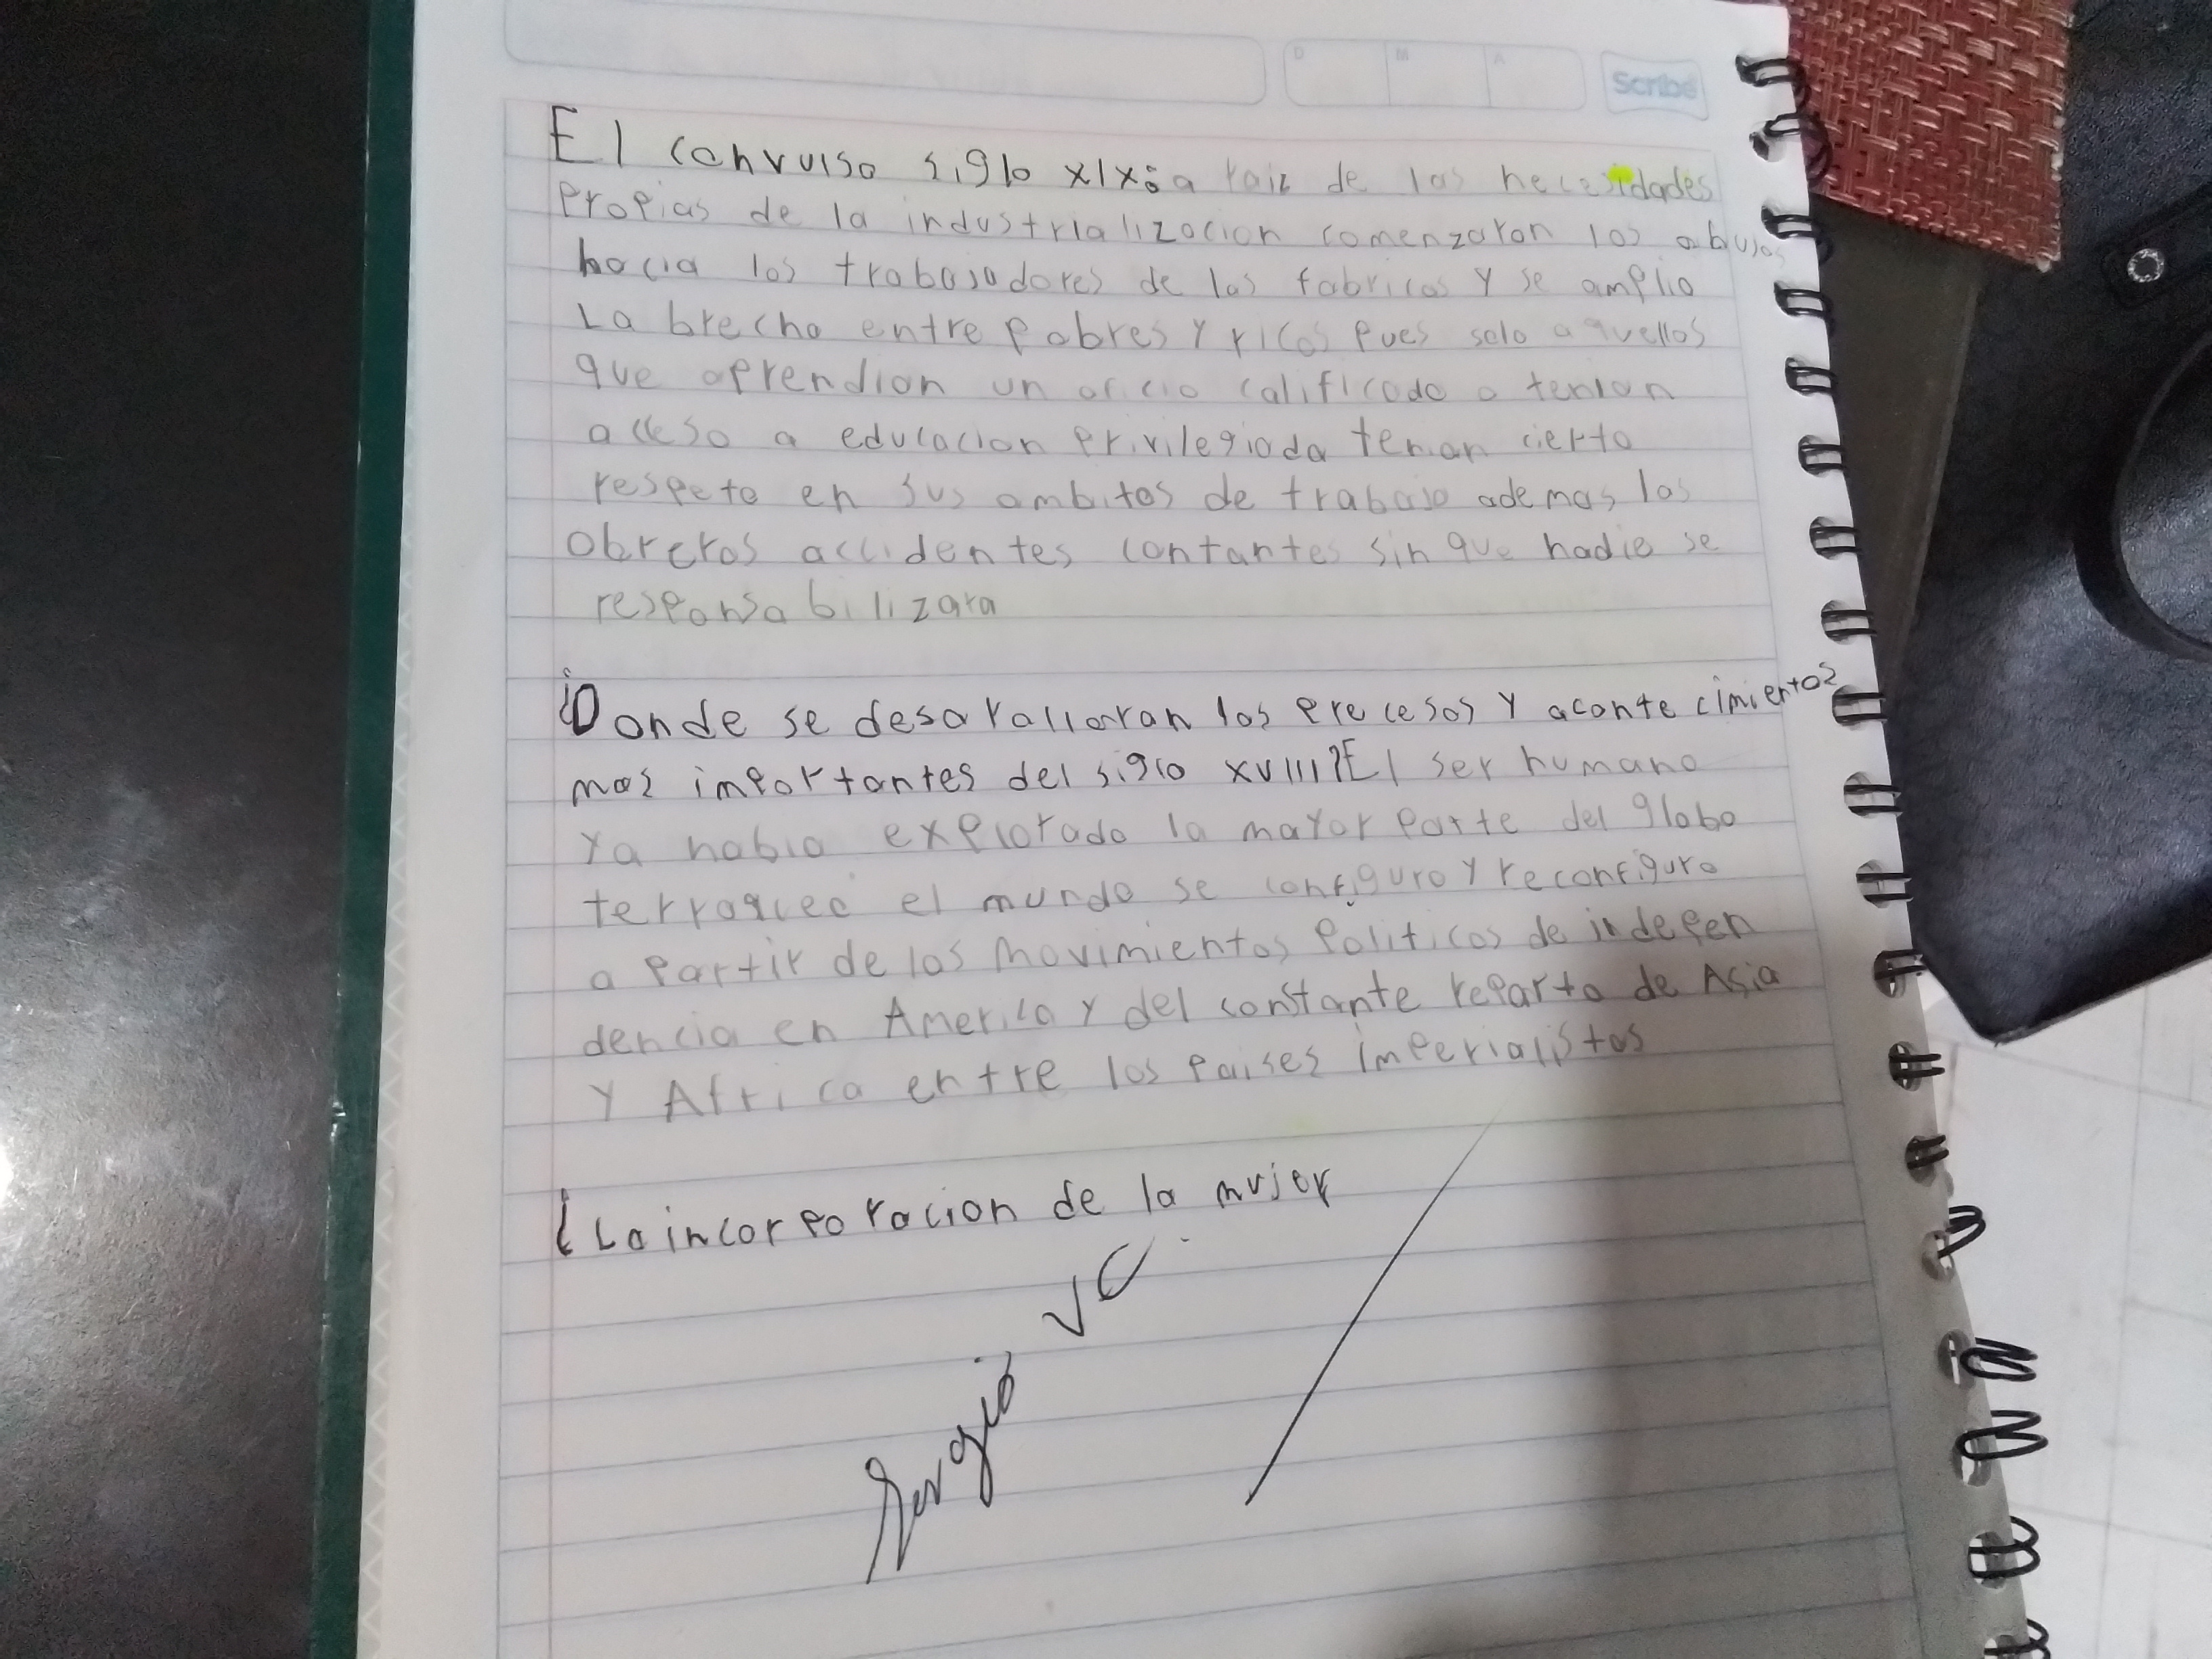 D M A
Scribe
El convulso siglo XIX: a raiz de las necesidades
propias de la industrializacion comenzaron los abusos
hacia los trabajadores de las fabricas y se amplio
La brecha entre pobres y ricos pues solo aquellos
que aprendian un oficio calificado o tenian
acceso a educacion privilegiada tenian cierto
respeto en sus ambitos de trabajo ademas las
obreros accidentes contantes sin que nadie se
responsabilizara
¿Donde se desarallaran los procesos y acontecimientos
mas importantes del siglo XVIII? El ser humano
ya habia explorado la mayor parte del globo
terraqueo el mundo se configuro y reconfiguro
a partir de los movimientos politicos de indepen
dencia en America y del constante reparto de Asia
y Africa entre los paises imperialistas
¿La incorporacion de la mujer
Sergio VC.